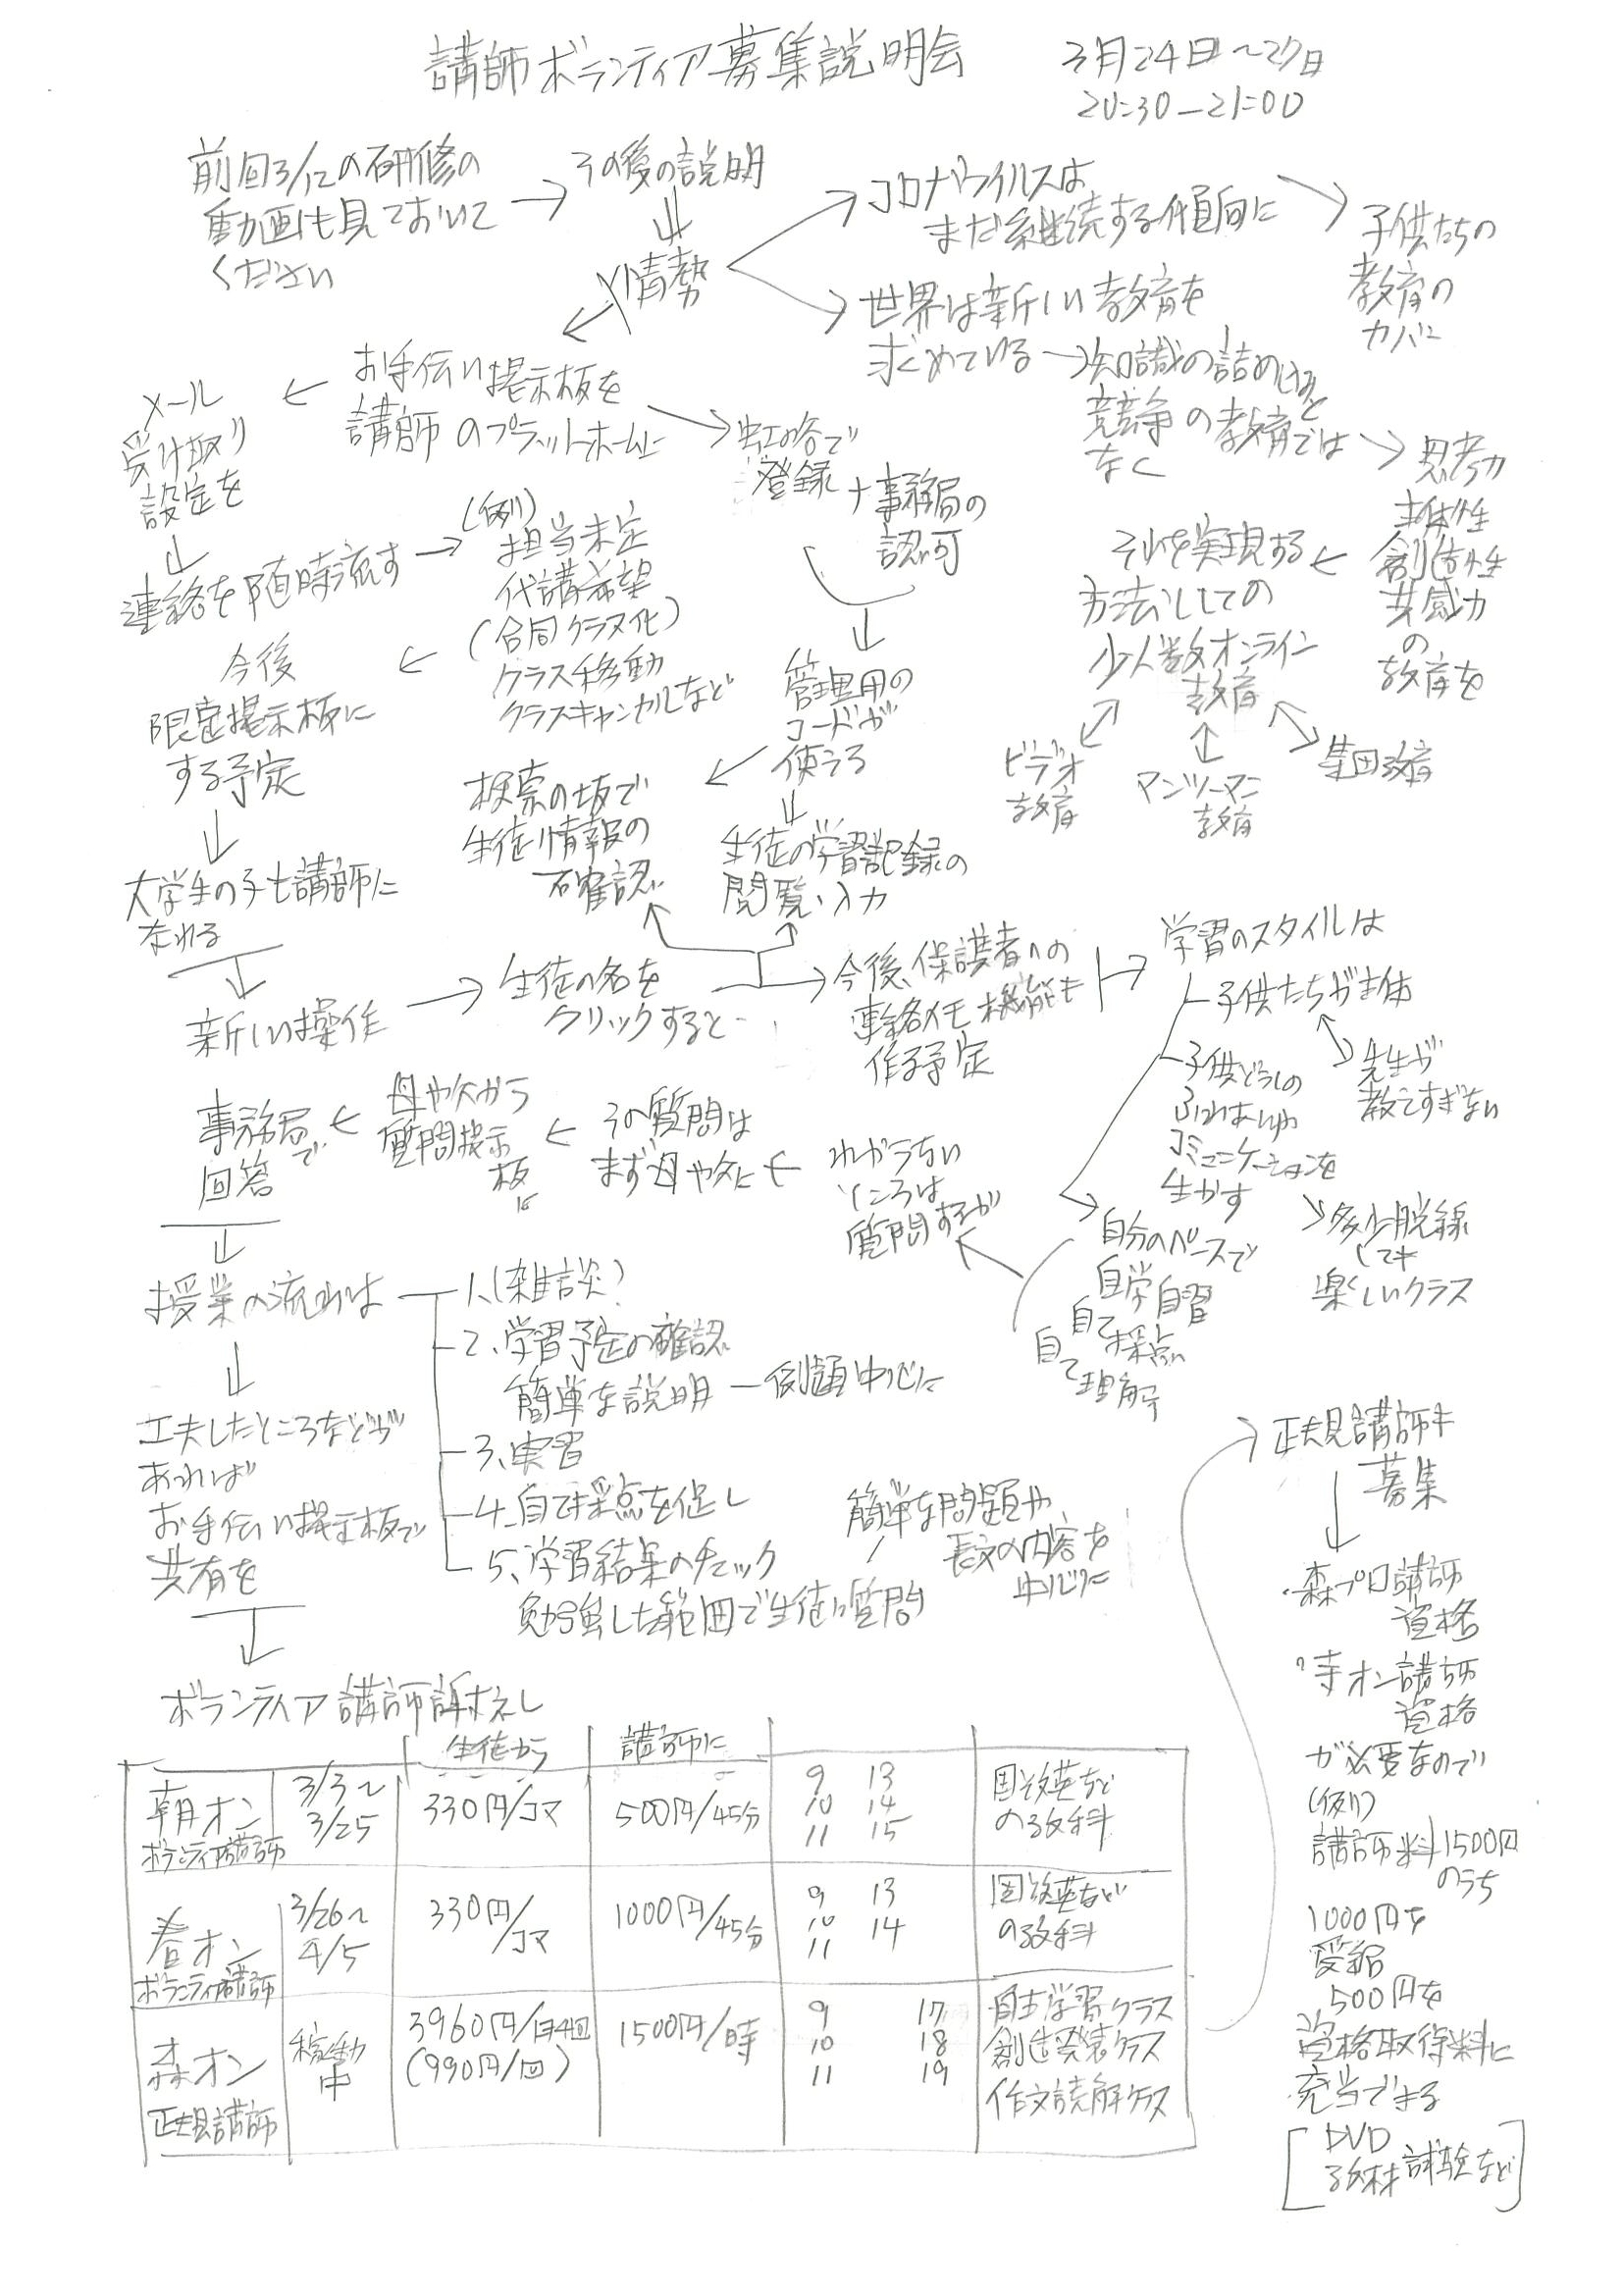 講師ボランティア募集説明会
3月24日〜27日
20:30−21:00
前回3/12の研修の
動画も見ておいて
ください
その後の説明
情勢
コロナウイルスは
まだ継続する傾向に
子供たちの
教育の
カバー
世界は新しい教育を
求めている
知識の詰め込みと
競争の教育では
なく
思考力
主体性
創造性
共感力
の
教育を
それを実現する
方法としての
少人数オンライン
教育
ビデオ
教育
マンツーマン
教育
集団教育
お手伝い掲示板を
講師のプラットホームに
メール
受け取り
設定を
連絡を随時流す
(例)
担当未定
代講希望
(合同クラス化)
クラス移動
クラスキャンセルなど
今後
限定掲示板に
する予定
大学生の子も講師に
なれる
虹の谷で
登録
+事務局の
認可
管理用の
コードが
使える
検索の坂で
生徒情報の
確認
生徒の学習記録の
閲覧・入力
新しい操作
生徒の名を
クリックすると
今後、保護者への
連絡メモ機能も
作る予定
学習のスタイルは
子供たちが主体
先生が
教えすぎない
子供どうしの
ふれあいや
コミュニケーションを
生かす
多少脱線
しても
楽しいクラス
自分のペースで
自学自習
自分で採点
自分で理解
わからない
ところは
質問するが
その質問は
まず母や父に
母や父から
質問掲示
板に
事務局で
回答
授業の流れは
1.(雑談)
2.学習予定の確認
簡単な説明 ー 例題中心に
3.実習
4.自己採点を促し
5.学習結果のチェック
勉強した範囲で生徒に質問
簡単な問題や
長文の内容を
中心に
工夫したところなどが
あれば
お手伝い掲示板で
共有を
ボランティア講師
生徒から
講師に
朝オン
ボランティア講師
3/3〜
3/25
330円/コマ
500円/45分
9 13
10 14
11 15
国数英など
の教科
春オン
ボランティア講師
3/26〜
4/5
330円/
コマ
1000円/45分
9 13
10 14
11
国数英など
の教科
森オン
正規講師
稼動
中
3960円/月4回
(990円/回)
1500円/時
9 17
10 18
11 19
自主学習クラス
創造発表クラス
作文読解クラス
正規講師も
募集
・森プロ講師
資格
・寺オン講師
資格
が必要なので
(例)
講師料1500円
のうち
1000円を
受給
500円を
資格取得料に
充当できる
DVD
教材 試験など